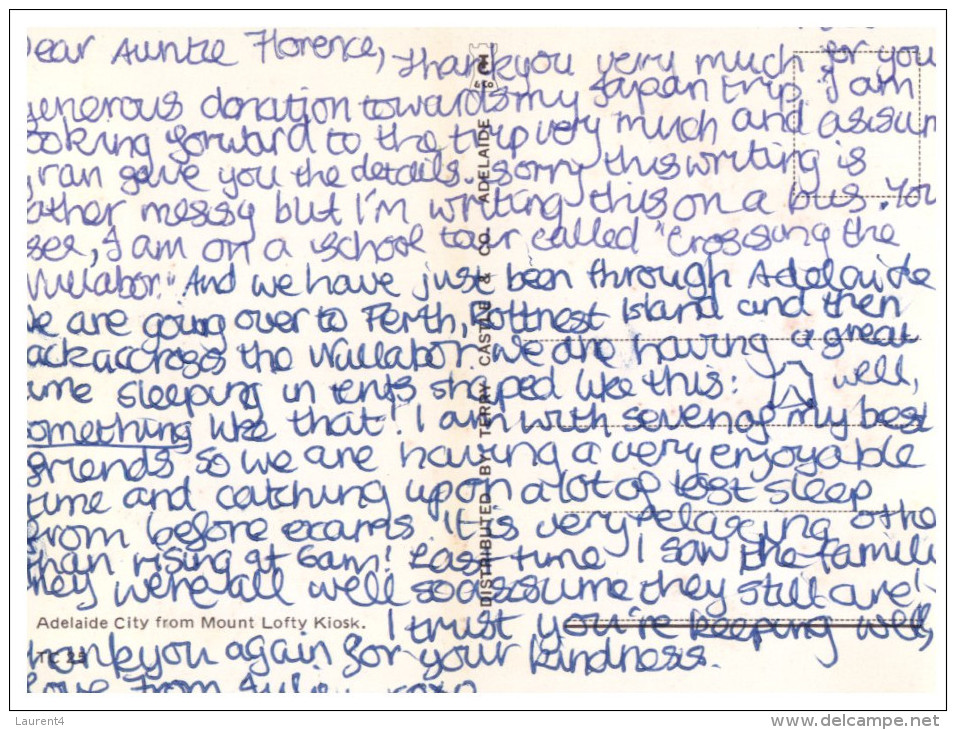 Dear Auntie Florence, thankyou very much for you
generous donation towards my Japan trip. I am
ooking forward to the trip very much and assum
ran gave you the details. Sorry this writing is
ather messy but I'm writing this on a bus. You
see, I am on a school tour called "Crossing the
Nullabor." And we have just been through Adelaide
We are going over to Perth, Rottnest Island and then
ack accross the Nullabor. We are having a great
ime sleeping in tents shaped like this: well,
something like that! I am with seven of my best
friends so we are having a very enjoyable
time and catching up on a lot of lost sleep
from before exams. It is very relaxing othe
than rising at 6am! Last time I saw the family
they were all well so assume they still are!
I trust you're keeping well,
thankyou again for your kindness.
Love from Julie xoxo
Adelaide City from Mount Lofty Kiosk.
TC 23
DISTRIBUTED BY TERRY CASTLE & CO. ADELAIDE
Laurent4
www.delcampe.net